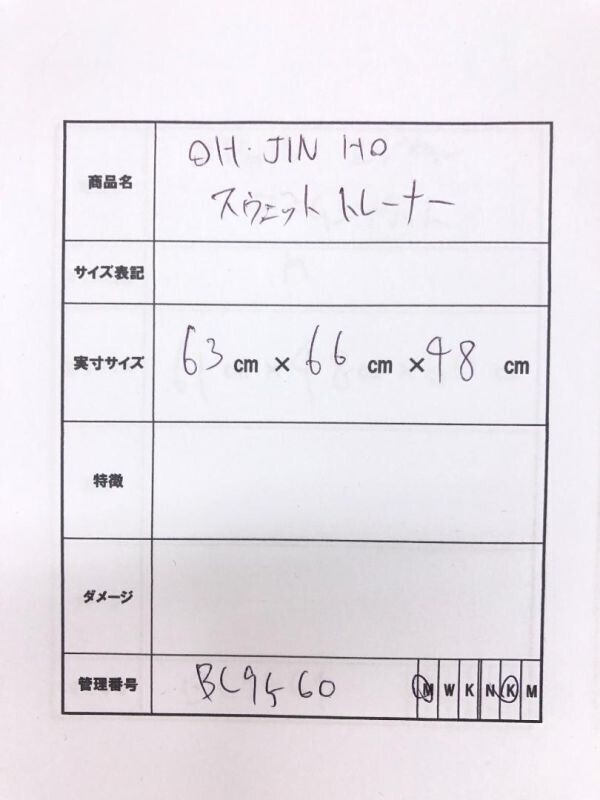 商品名
OH・JIN HO
スウェット トレーナー
サイズ表記
実寸サイズ 63 cm × 66 cm × 48 cm
特徴
ダメージ
管理番号 BC9560 M W K N K M